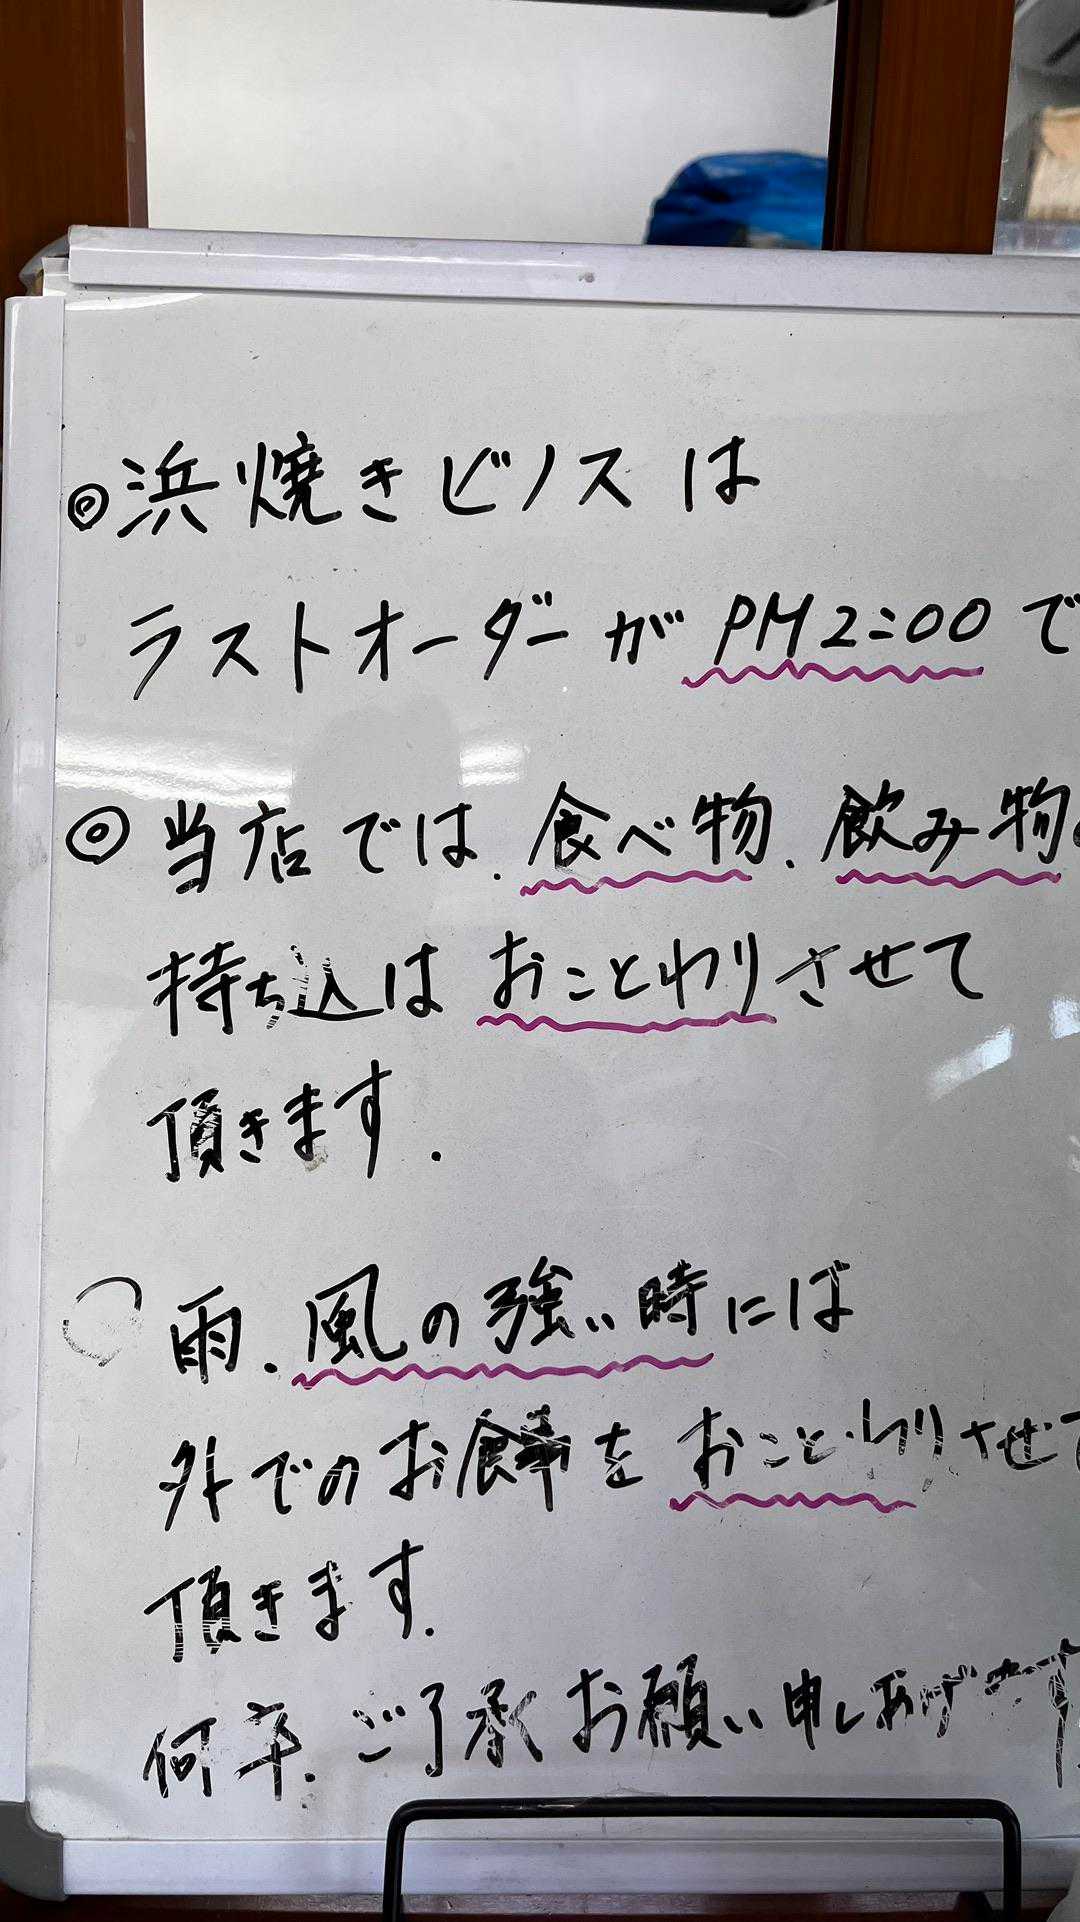 ◎浜焼きビノスは
ラストオーダーが PM2:00 で
◎当店では、食べ物、飲み物
持ち込はおことわりさせて
頂きます.
○雨、風の強い時には
外でのお食事をおことわりさせて
頂きます.
何卒、ご了承お願い申しあげます